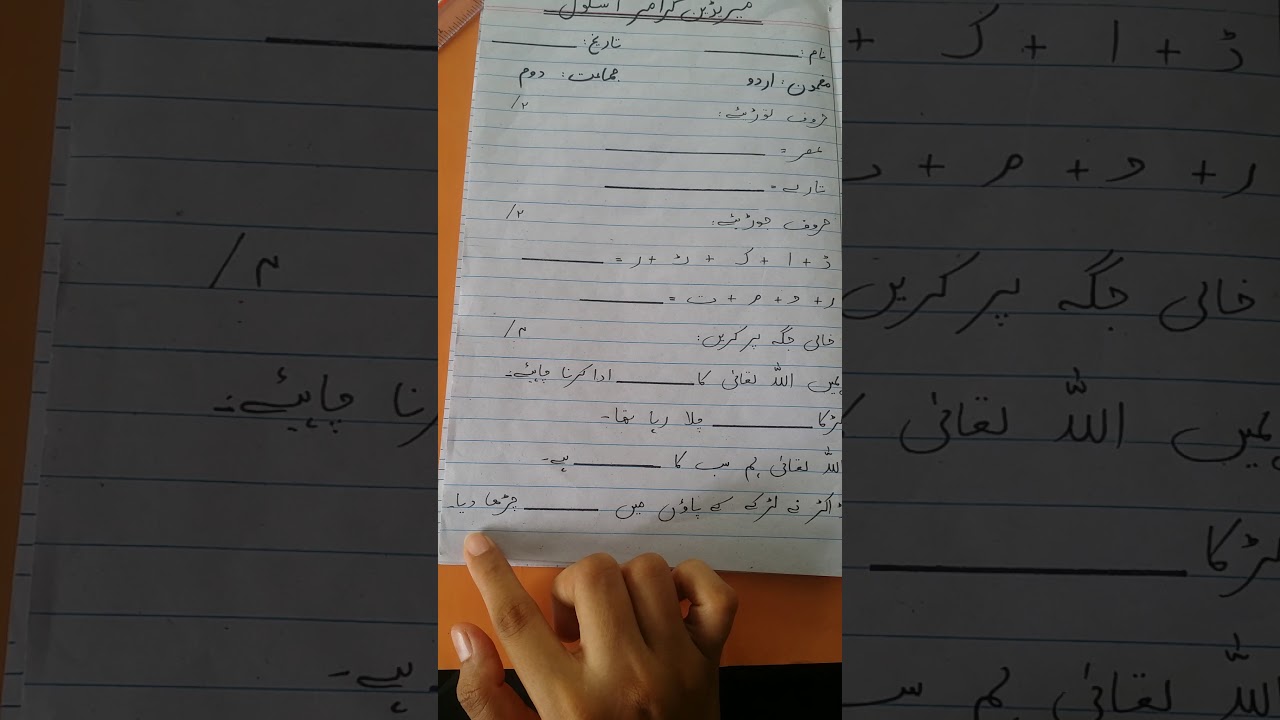 میریڈین گرامر اسکول
نام: ________ تاریخ: ________
مضمون: اردو جماعت: دوم
حروف توڑیئے: /۲
عصر = ________
تارے = ________
حروف جوڑیئے: /۲
ڈ + ا + ک + ٹ + ر = ________
ر + و + م + ت = ________
خالی جگہ پر کریں: /۴
ہمیں اللہ تعالیٰ کا ________ ادا کرنا چاہیئے۔
لڑکا ________ چلا رہا تھا۔
اللہ تعالیٰ ہم سب کا ________ ہے۔
ڈاکٹر نے لڑکے کے پاؤں میں ________ چڑھا دیا۔